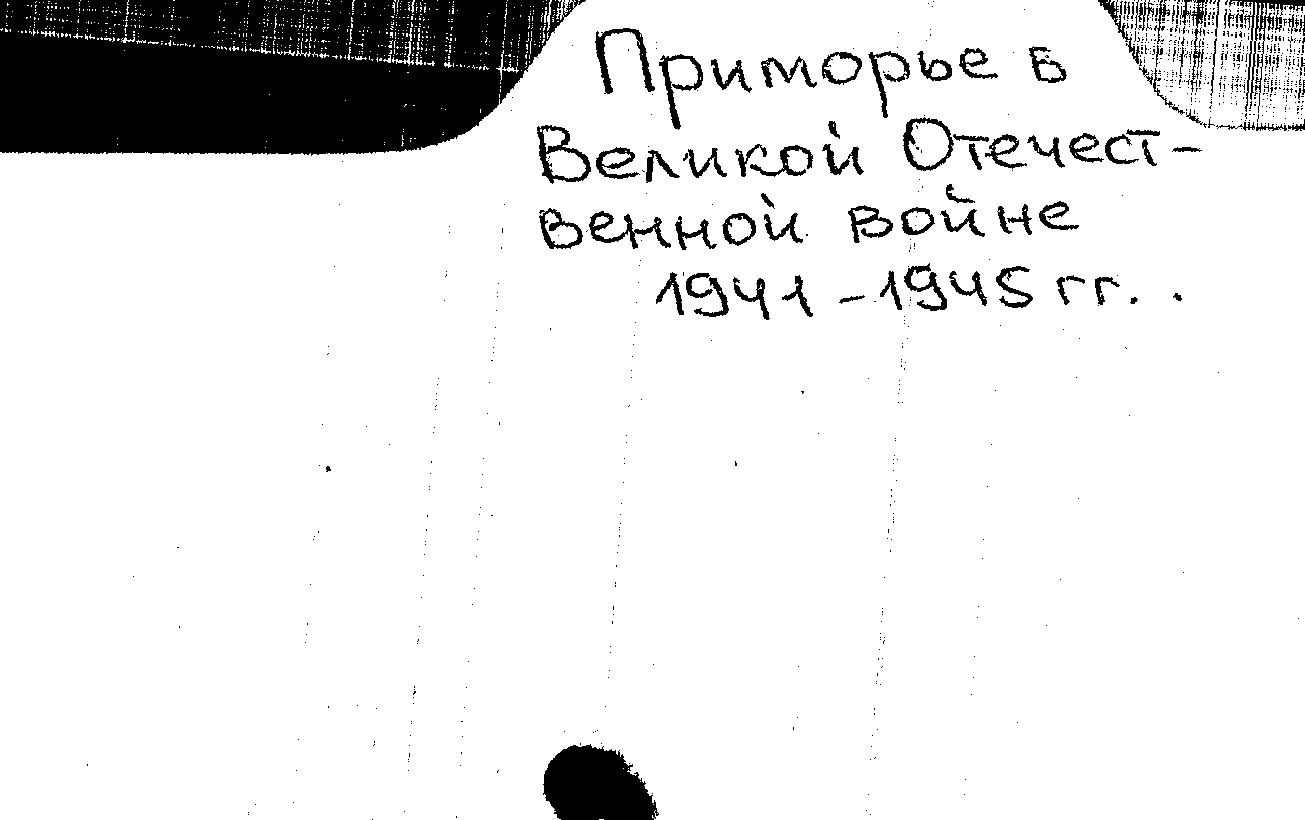 Приморье в
Великой Отечест-
венной войне
1941-1945 гг. .